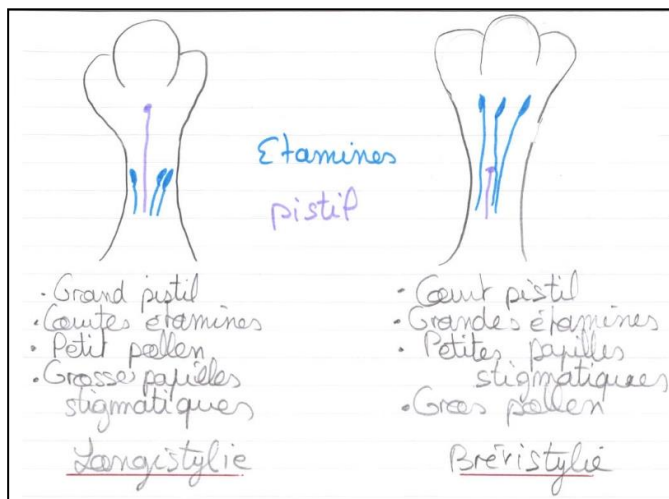 Etamines
pistil
. Grand pistil
. Courtes étamines
. Petit pollen
. Grosse papilles
stigmatiques
Longistylie
. Court pistil
. Grandes étamines
. Petites papilles
stigmatiques
. Gros pollen
Brévistylie